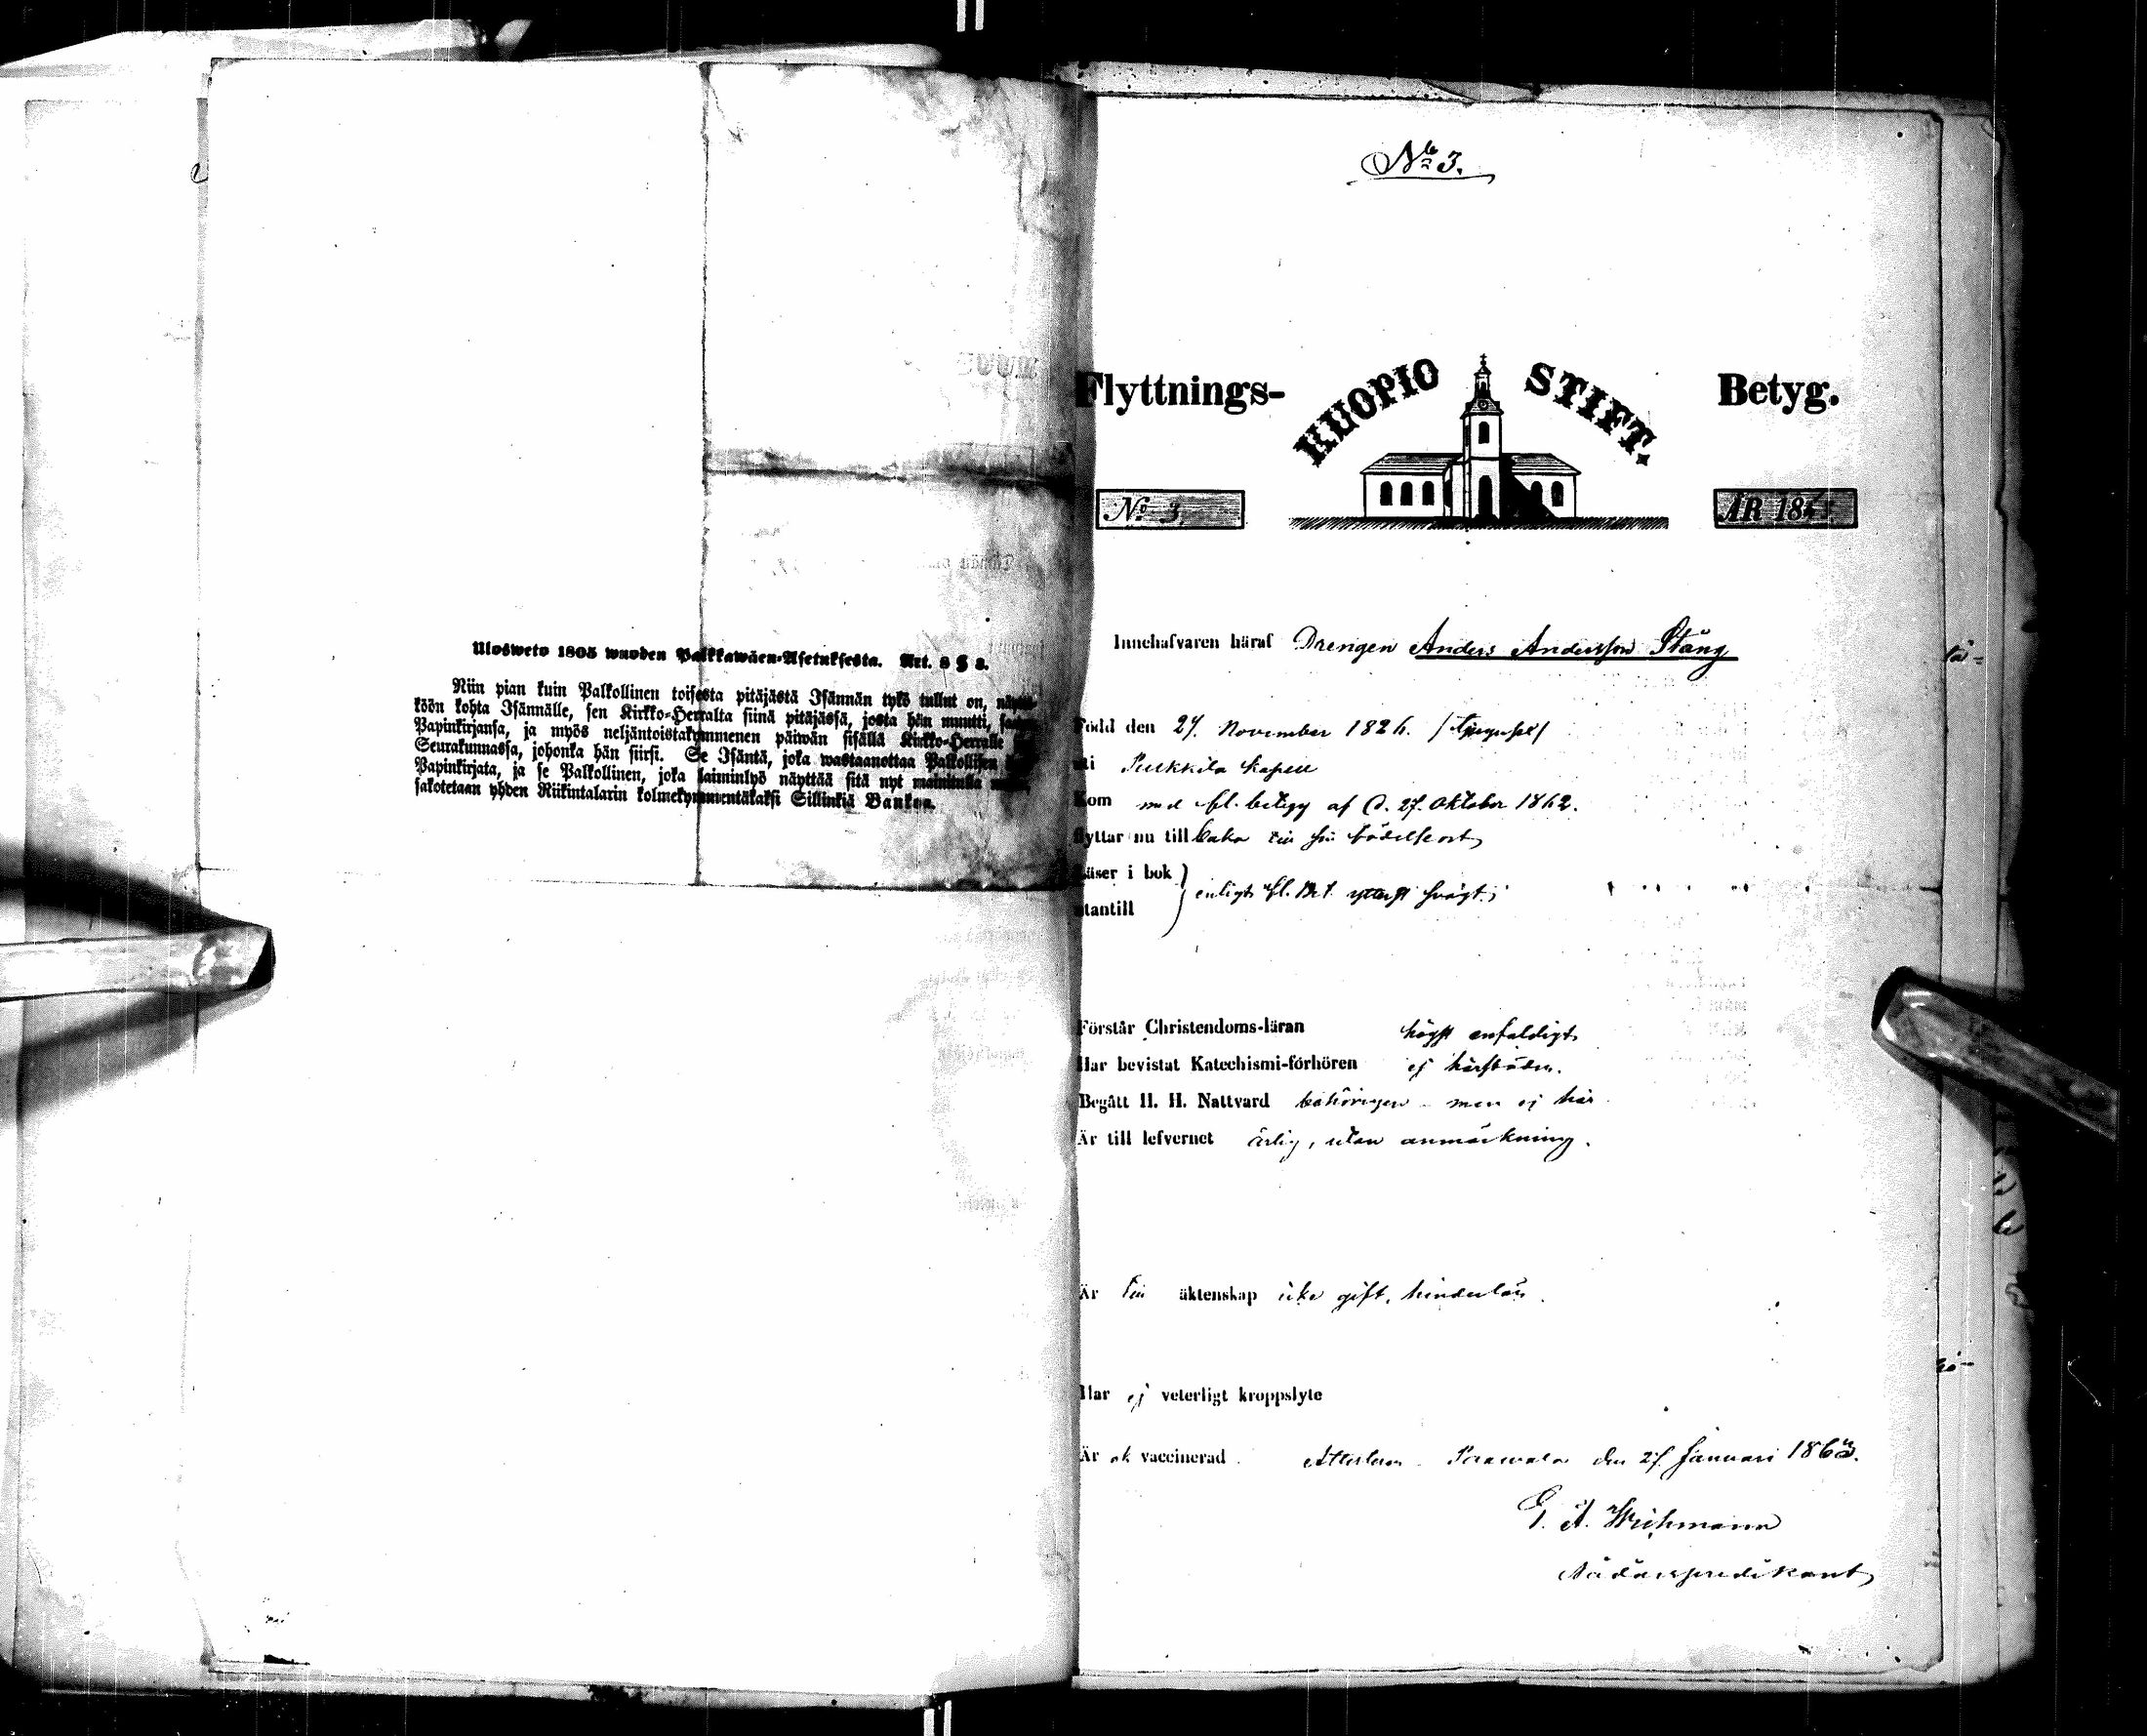 Ulosweto 1805 wuoden Palkkawäen-Asetuksesta. Art. 8 § 8.
Niin pian kuin Palkollinen toisesta pitäjästä Isännän tykö tullut on,
köön kohta Isännälle, sen Kirkko-Herralta siinä pitäjässä, josta hän muutti,
Papinkirjansa, ja myös neljäntoistakymmenen päiwän sisällä Kirkko-Herralle
Seurakunnassa, johonka hän siirsi. Se Isäntä, joka wastaanottaa Palkollisen
Papinkirjata, ja se Palkollinen, joka laiminlyö näyttää sitä nyt mainitulla
sakotetaan yhden Riikintalarin kolmekymmentäkaksi Sillinkiä Bankoa.
No 3.
Flyttnings- KUOPIO STIFT. Betyg.
No 3. ÅR 1863
Innehafvaren häraf Drengen Anders Andersson Stång
Född den 27. November 1826.
uti Pulkkila kapell
Kom med fl. betyg af d. 27. Oktober 1862.
flyttar nu till baka till sin födelseort
Läser i bok
utantill
enligt fl. Bet. ytterst svagt;
Förstår Christendoms-läran högst enfaldigt
Har bevistat Katechismi-förhören ej härstädes.
Begått H. H. Nattvard behörigen men ej här
Är till lefvernet ärlig, utan anmärkning.
Är till äktenskap icke gift, hinderlös.
Har ej veterligt kroppslyte
Är ok vaccinerad Attesterar Paavola den 27 Januari 1863.
G. A. Wichmann